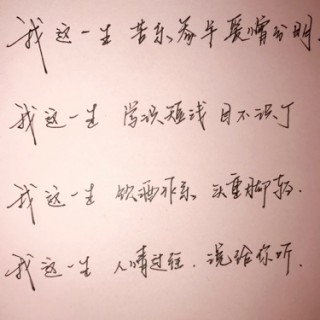 我这一生 苦乐参半 爱憎分明.
我这一生 学识短浅 目不识丁
我这一生 饮酒作乐 头重脚轻.
我这一生 人情过往. 说给你听.